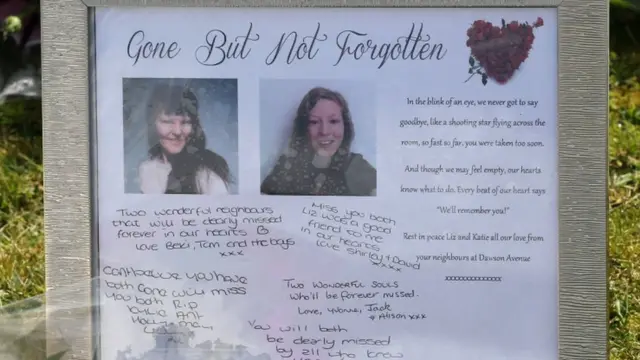 Gone But Not Forgotten
In the blink of an eye, we never got to say
goodbye, like a shooting star flying across the
room, so fast so far, you were taken too soon.
And though we may feel empty, our hearts
know what to do. Every beat of our heart says
"We'll remember you!"
Rest in peace Liz and Katie all our love from
your neighbours at Dawson Avenue
xxxxxxxxxxxxx
Two wonderful neighbours
that will be dearly missed
forever in our hearts
Love Beki, Tom and the boys
xxx
Miss you both
Liz was a good
friend to me
in our hearts
love Shirley & David
xxxx
you have
both Gone will miss
you both RIP
Two wonderful souls
who'll be forever missed.
Love, Yvonne, Jack
& Alison xxx
You will both
be dearly missed
by all who know